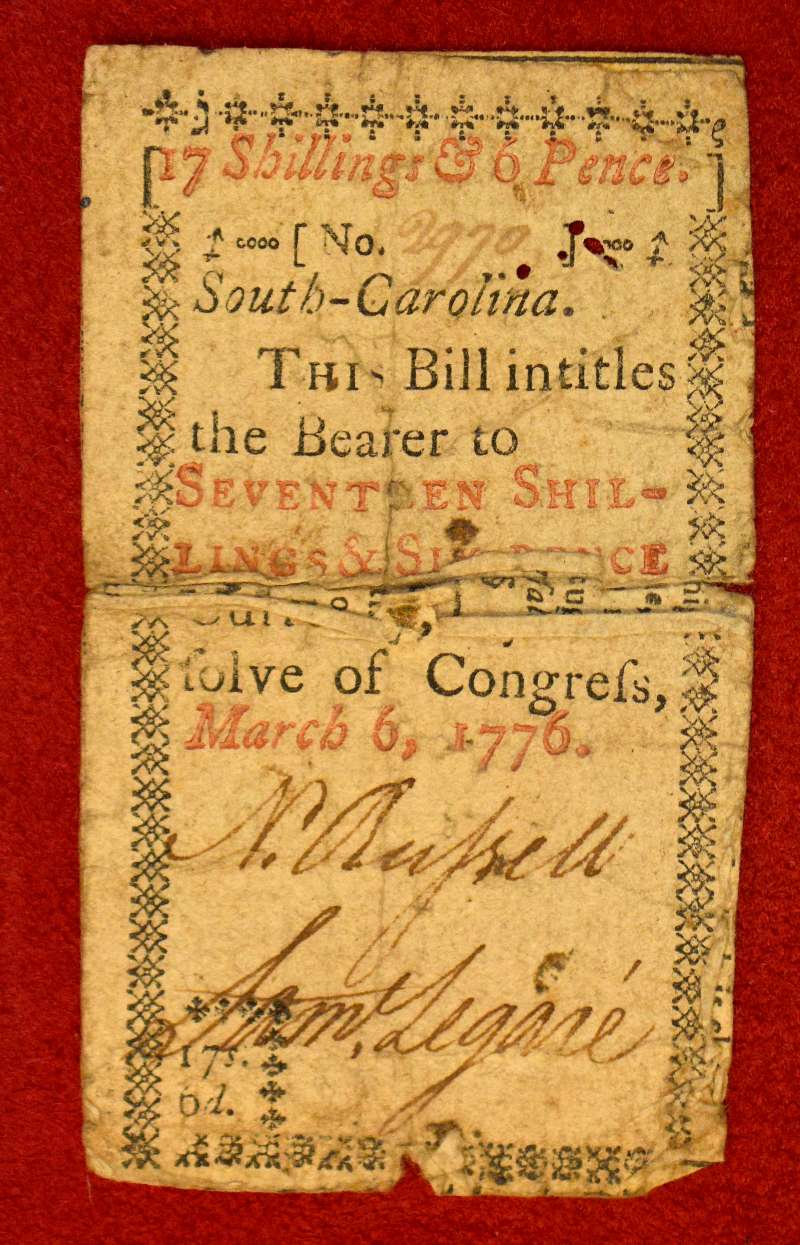 17 Shillings & 6 Pence.
[ No. 2770 ]
South-Carolina.
THIS Bill intitles
the Bearer to
SEVENTEEN SHIL-
LINGS & SIX PENCE
ſolve of Congreſs,
March 6, 1776.
N. Ruſsell
Samˡ. Legaré
17s.
6d.